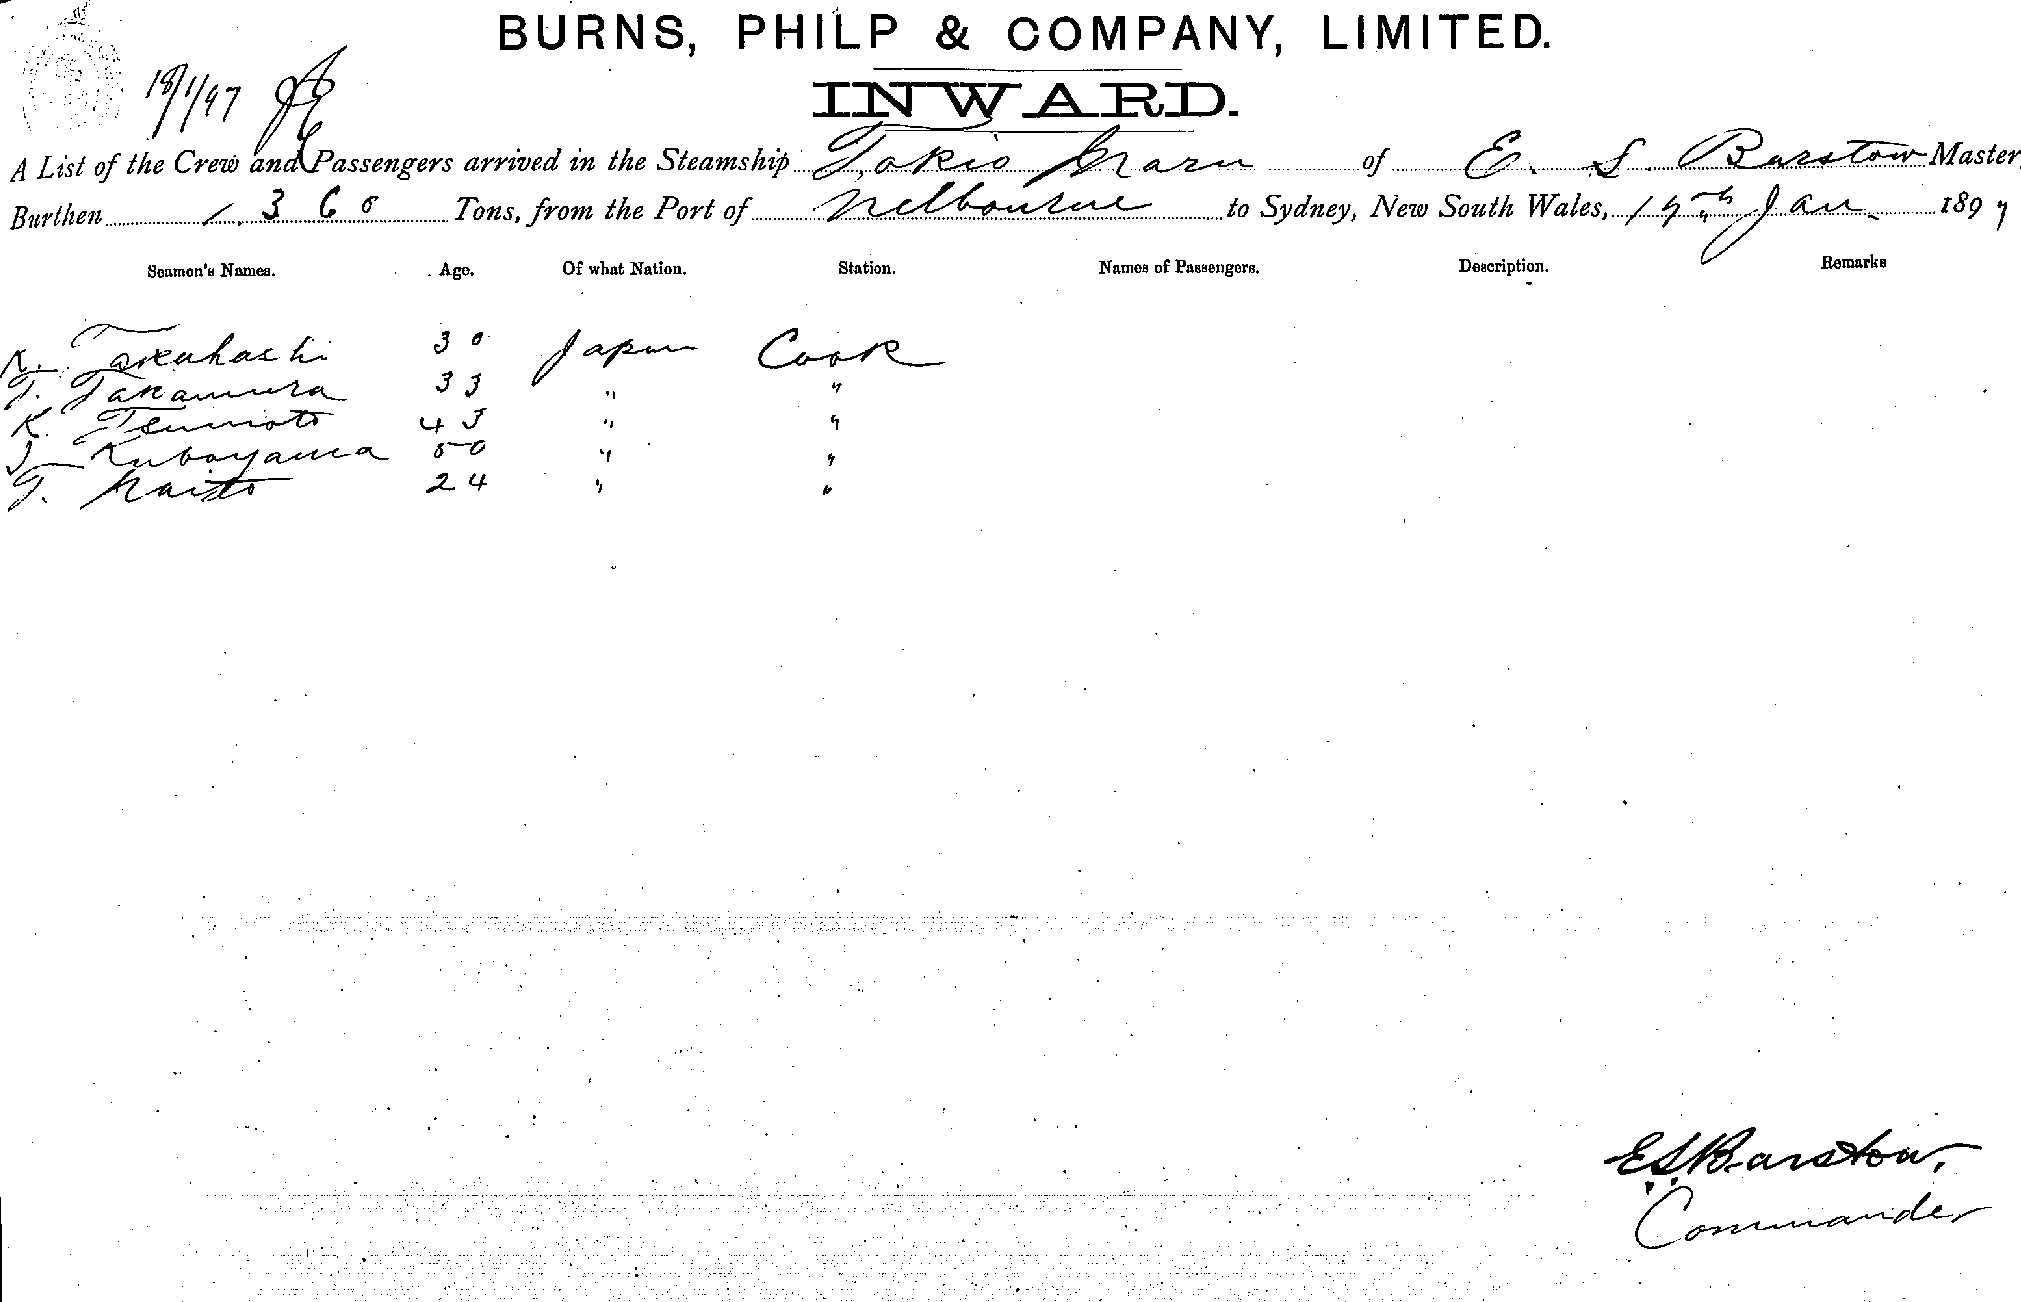 BURNS, PHILP & COMPANY, LIMITED.
18/1/97
INWARD.
A List of the Crew and Passengers arrived in the Steamship Tokio Maru of E. S. Barstow Master
Burthen 1.360 Tons, from the Port of Melbourne to Sydney, New South Wales, 17th Jan. 1897
Seamen's Names. Age. Of what Nation. Station. Names of Passengers. Description. Remarks
K. Takahashi 30 Japan Cook
T. Takamura 33 " "
K. Tsumoto 43 " "
Kuboyama 50 " "
T. Naito 24 " "
E.S. Barstow,
Commander